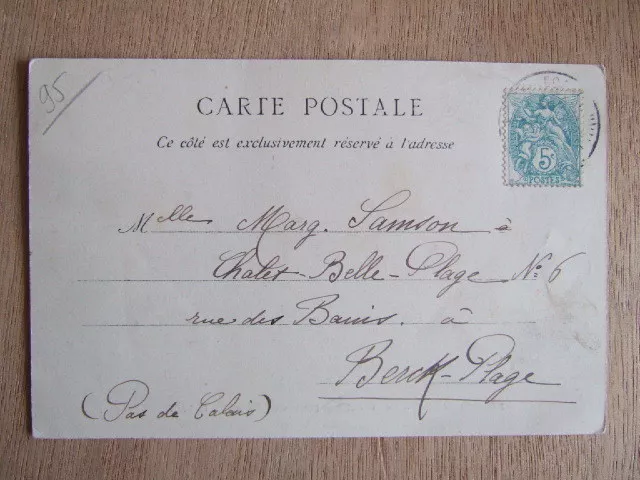 95
CARTE POSTALE
Ce côté est exclusivement réservé à l'adresse
5c
Melle Marg. Samson à
Chalet-Belle-Plage No. 6
rue des Bains. à
Berck-Plage
(Pas de Calais)